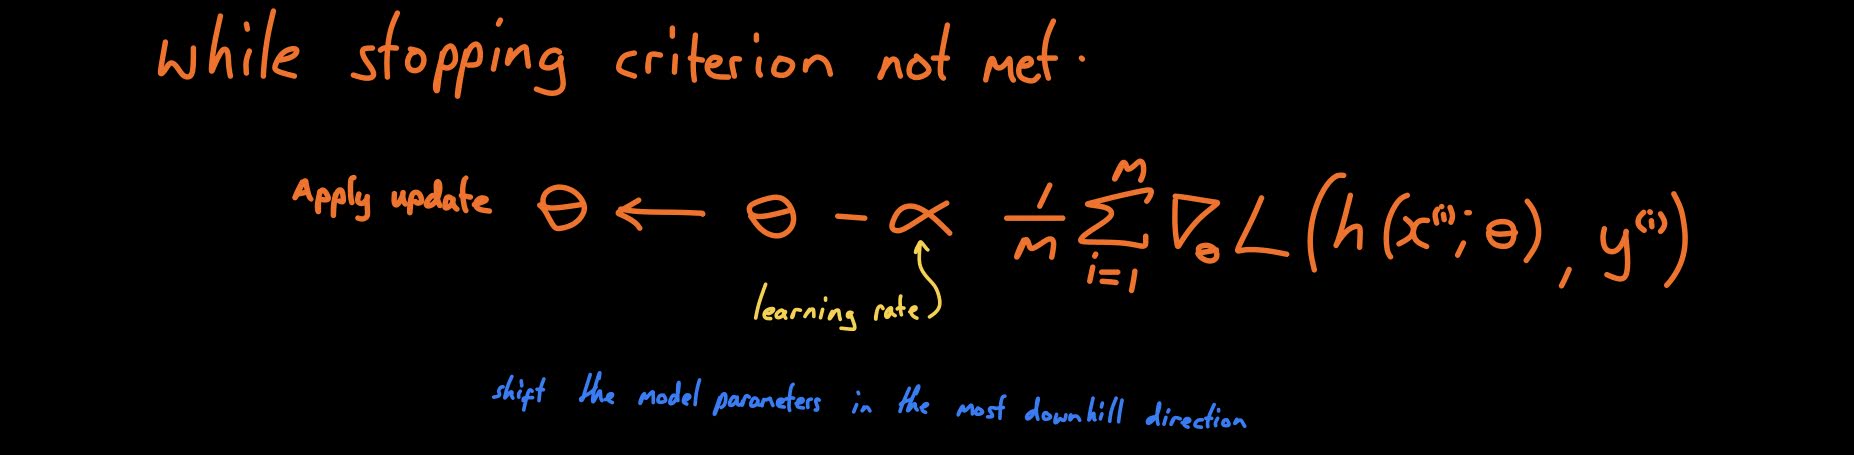 while stopping criterion not met.
Apply update θ ← θ - α 1/m ∑_{i=1}^{m} ∇_θ L(h(x^{(i)}; θ), y^{(i)})
learning rate
shift the model parameters in the most downhill direction